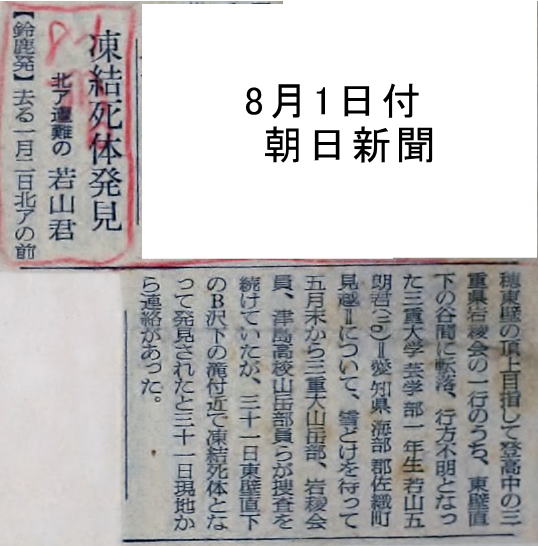 8月1日付
朝日新聞
凍結死体発見
北ア遭難の 若山君
【鈴鹿発】去る一月二日北アの前
穂東壁の頂上目指して登高中の三
重県岩稜会の一行のうち、東壁直
下の谷間に転落、行方不明となっ
た三重大学芸学部一年生若山五
朗君(19)=愛知県海部郡佐織町
見越=について、雪どけを待って
五月末から三重大山岳部、岩稜会
員、津島高校山岳部員らが捜査を
続けていたが、三十一日東壁直下
のB沢下の滝付近で凍結死体とな
って発見されたと三十一日現地か
ら連絡があった。